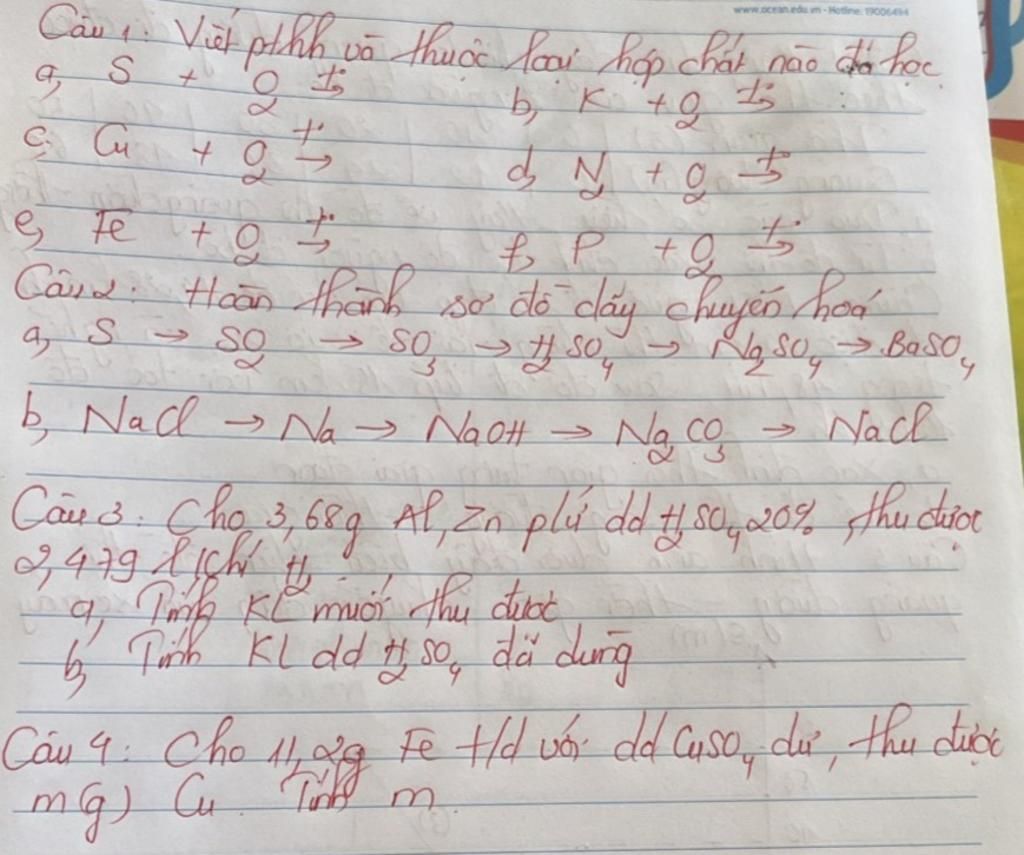 www.ocean.edu.vn - Hotline: 19006494
Câu 1: Viết pthh và thuộc loại hợp chất nào đã học
a, S + O₂ t°→ b, K + O₂ t°→
c, Cu + O₂ t°→ d, N₂ + O₂ t°→
e, Fe + O₂ t°→ f, P + O₂ t°→
Câu 2: Hoàn thành sơ đồ dãy chuyển hoá
a, S → SO₂ → SO₃ → H₂SO₄ → Na₂SO₄ → BaSO₄
b, NaCl → Na → NaOH → Na₂CO₃ → NaCl
Câu 3: Cho 3,68g Al, Zn pứ dd H₂SO₄ 20%, thu được
2,479 l khí H₂
a, Tính KL muối thu được
b, Tính KL dd H₂SO₄ đã dùng
Câu 4: Cho 11,2g Fe t/d với dd CuSO₄ dư, thu được
m(g) Cu. Tính m.